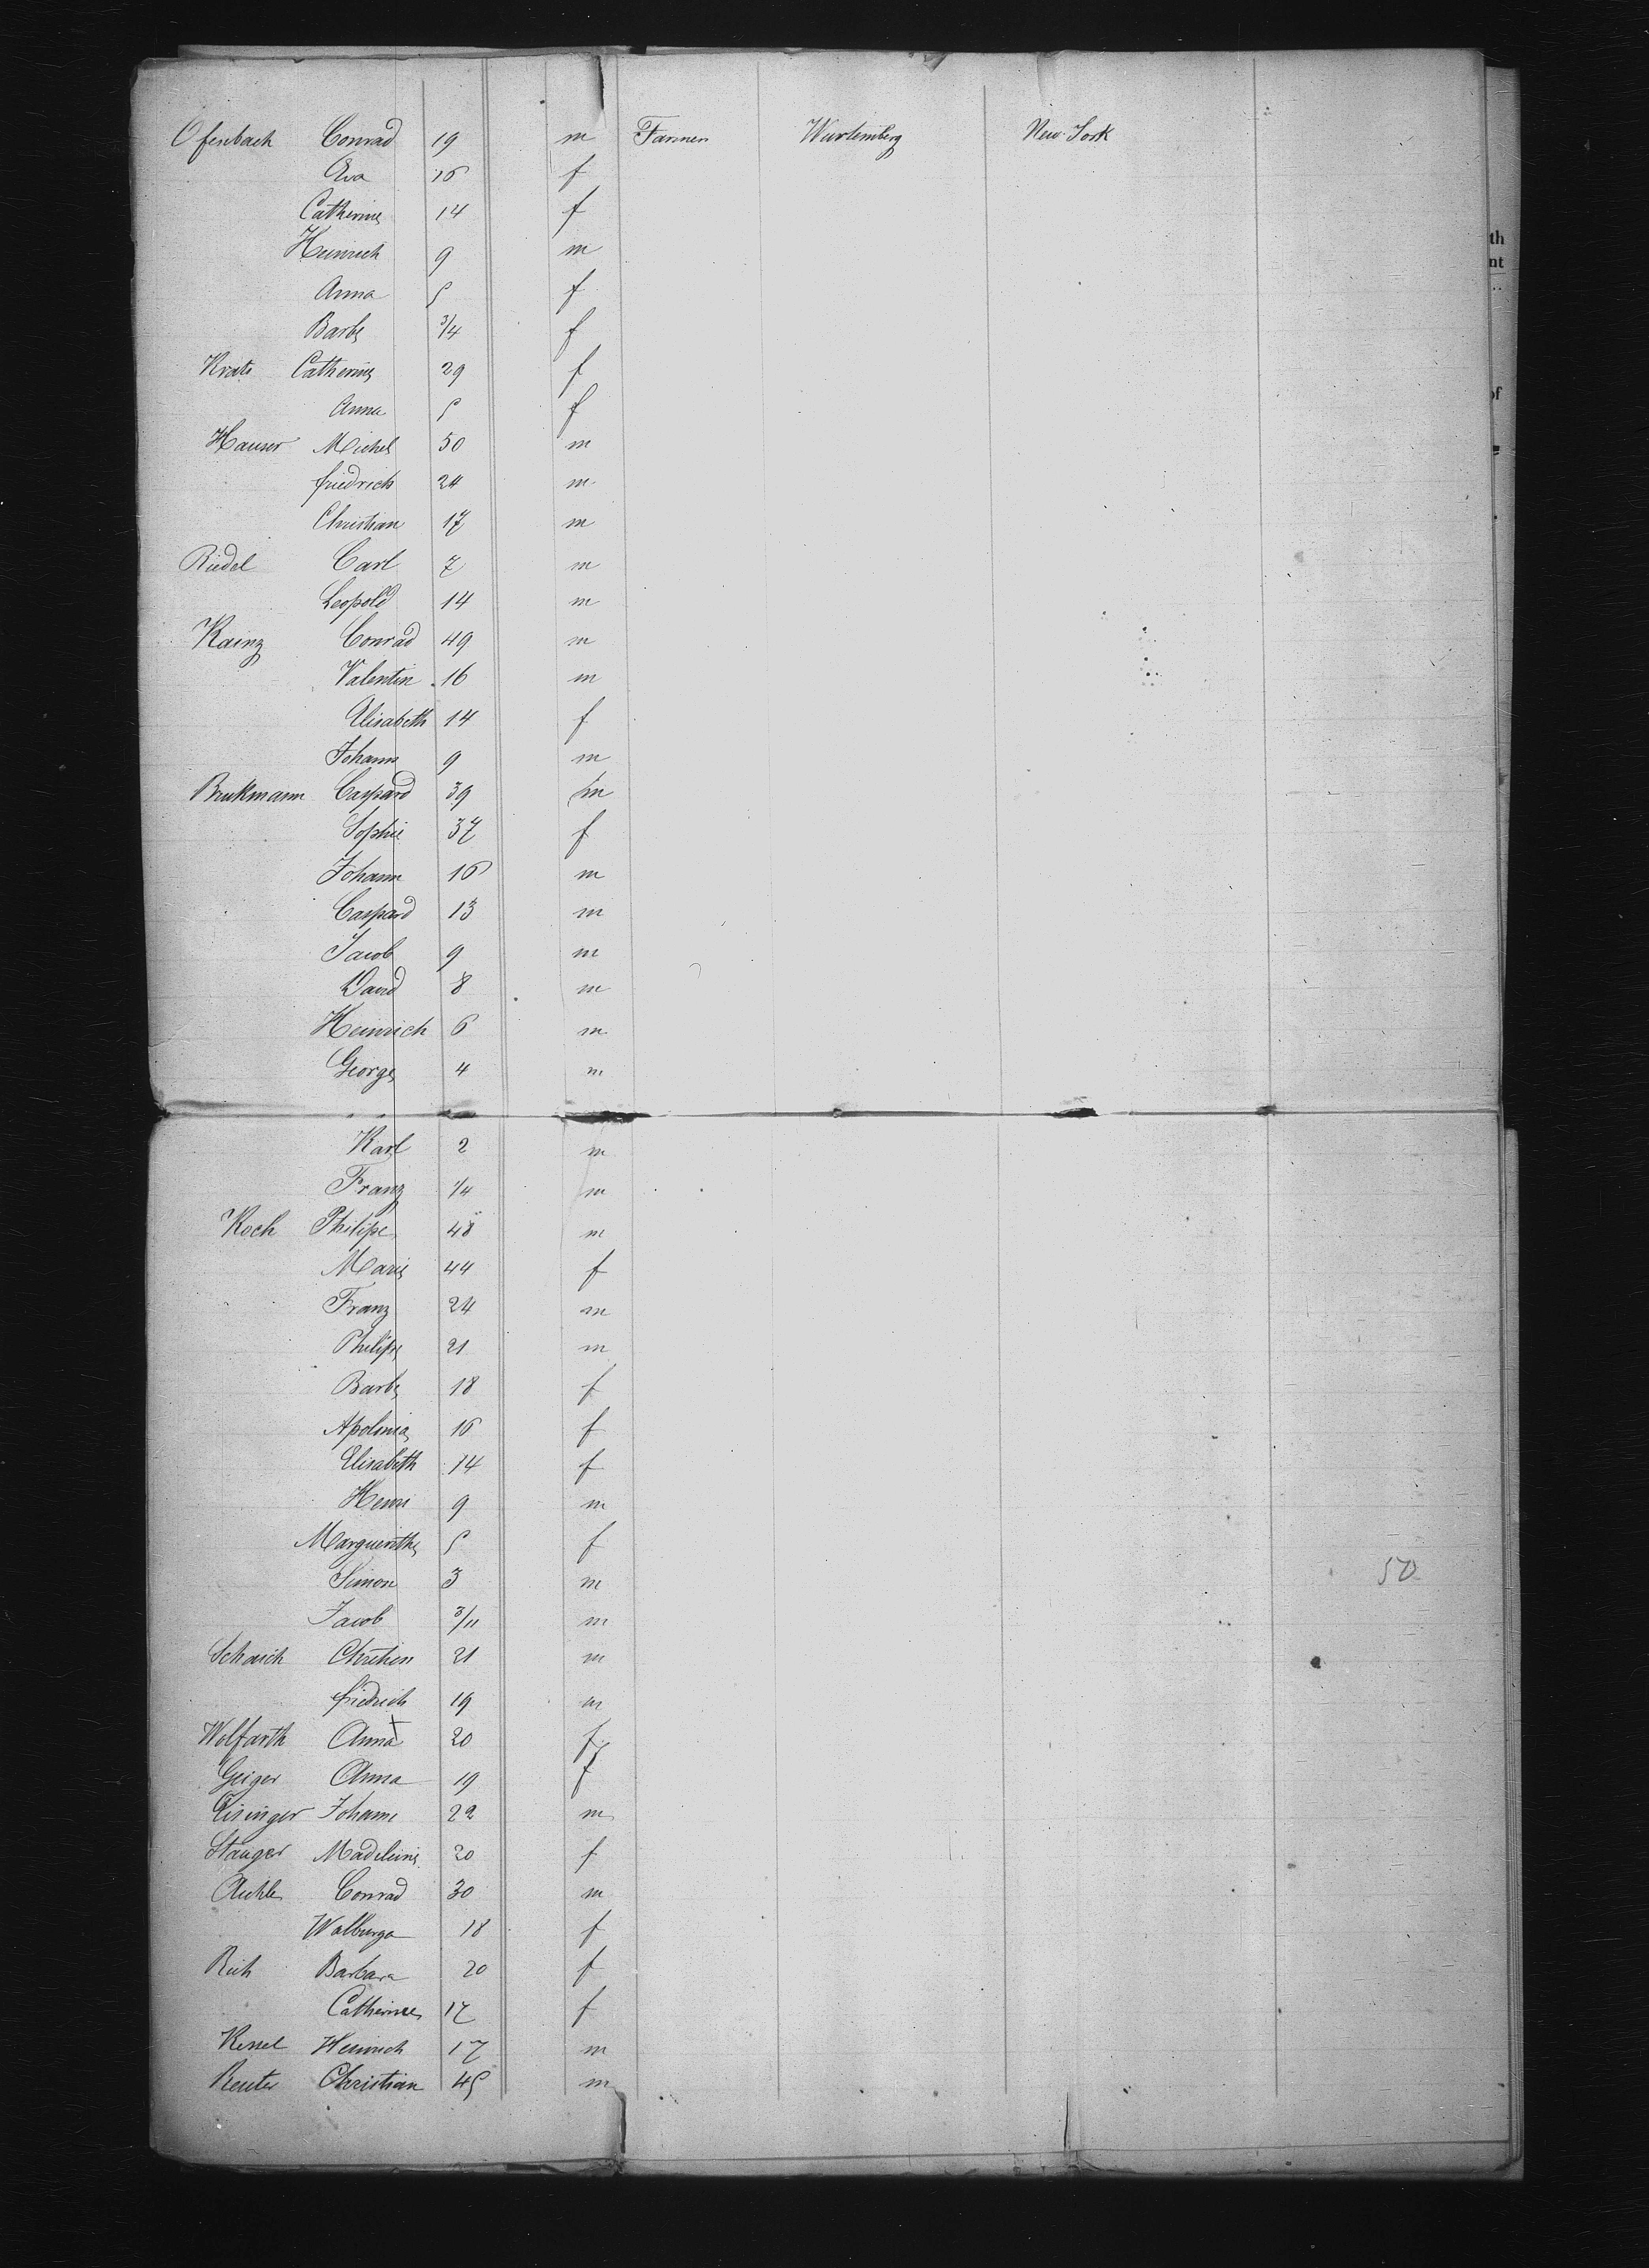 Ofenbach Conrad 19 m Farmer Wurtemberg New-York
Eva 16 f
Catherine 14 f
Heinrich 9 m
Anna 5 f
Barbe 3/4 f
Catherine 29 f
Anna 5 f
Hauser Michel 50 m
friedrich 24 m
Christian 17 m
Riedel Carl 7 m
Leopold 14 m
Kainz Conrad 49 m
Valentin 16 m
Elisabeth 14 f
Johann 9 m
Brukmann Caspard 39 m
Sophie 37 f
Johann 16 m
Caspard 13 m
Jacob 9 m
David 8 m
Heinrich 6 m
George 4 m
Karl 2 m
Franz 1/4 m
Koch Philipe 48 m
Marie 44 f
Franz 24 m
Philipe 21 m
Barbe 18 f
Apolinia 16 f
Elisabeth 14 f
Henri 9 m
Marguerithe 5 f
Simon 3 m
50
Jacob 3/11 m
Schaich Chretien 21 m
friedrich 19 m
Wolfarth Anna 20 f
Geiger Anna 19 f
Eisinger Johann 22 m
Stanger Madeleine 20 f
Conrad 30 m
Walburga 18 f
Barbara 20 f
Catherine 17 f
Kessel Heinrich 17 m
Reuter Christian 45 m
th
nt
of